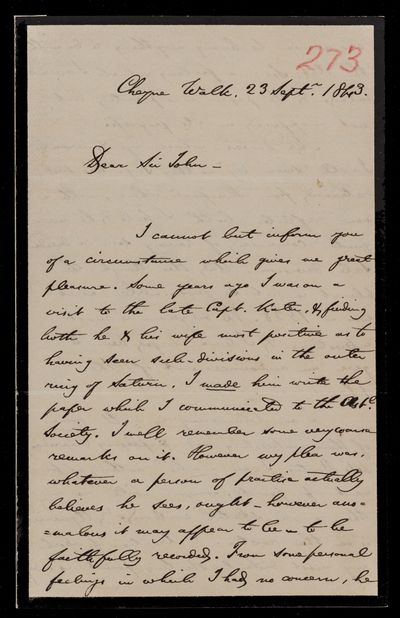 273
Cheyne Walk, 23 Septr. 1843.
Dear Sir John —
I cannot but inform you
of a circumstance which gives me great
pleasure. Some years ago I was on a
visit to the late Capt. Kater, & finding
both he & his wife most positive as to
having seen sub-divisions in the outer
ring of Saturn, I made him write the
paper which I communicated to the Astl.
Society. I well remember some very coarse
remarks on it. However my plea was,
whatever a person of practice actually
believes he sees, ought – however ano-
=malous it may appear to be – to be
faithfully recorded. From some personal
feelings in which I had no concern, he